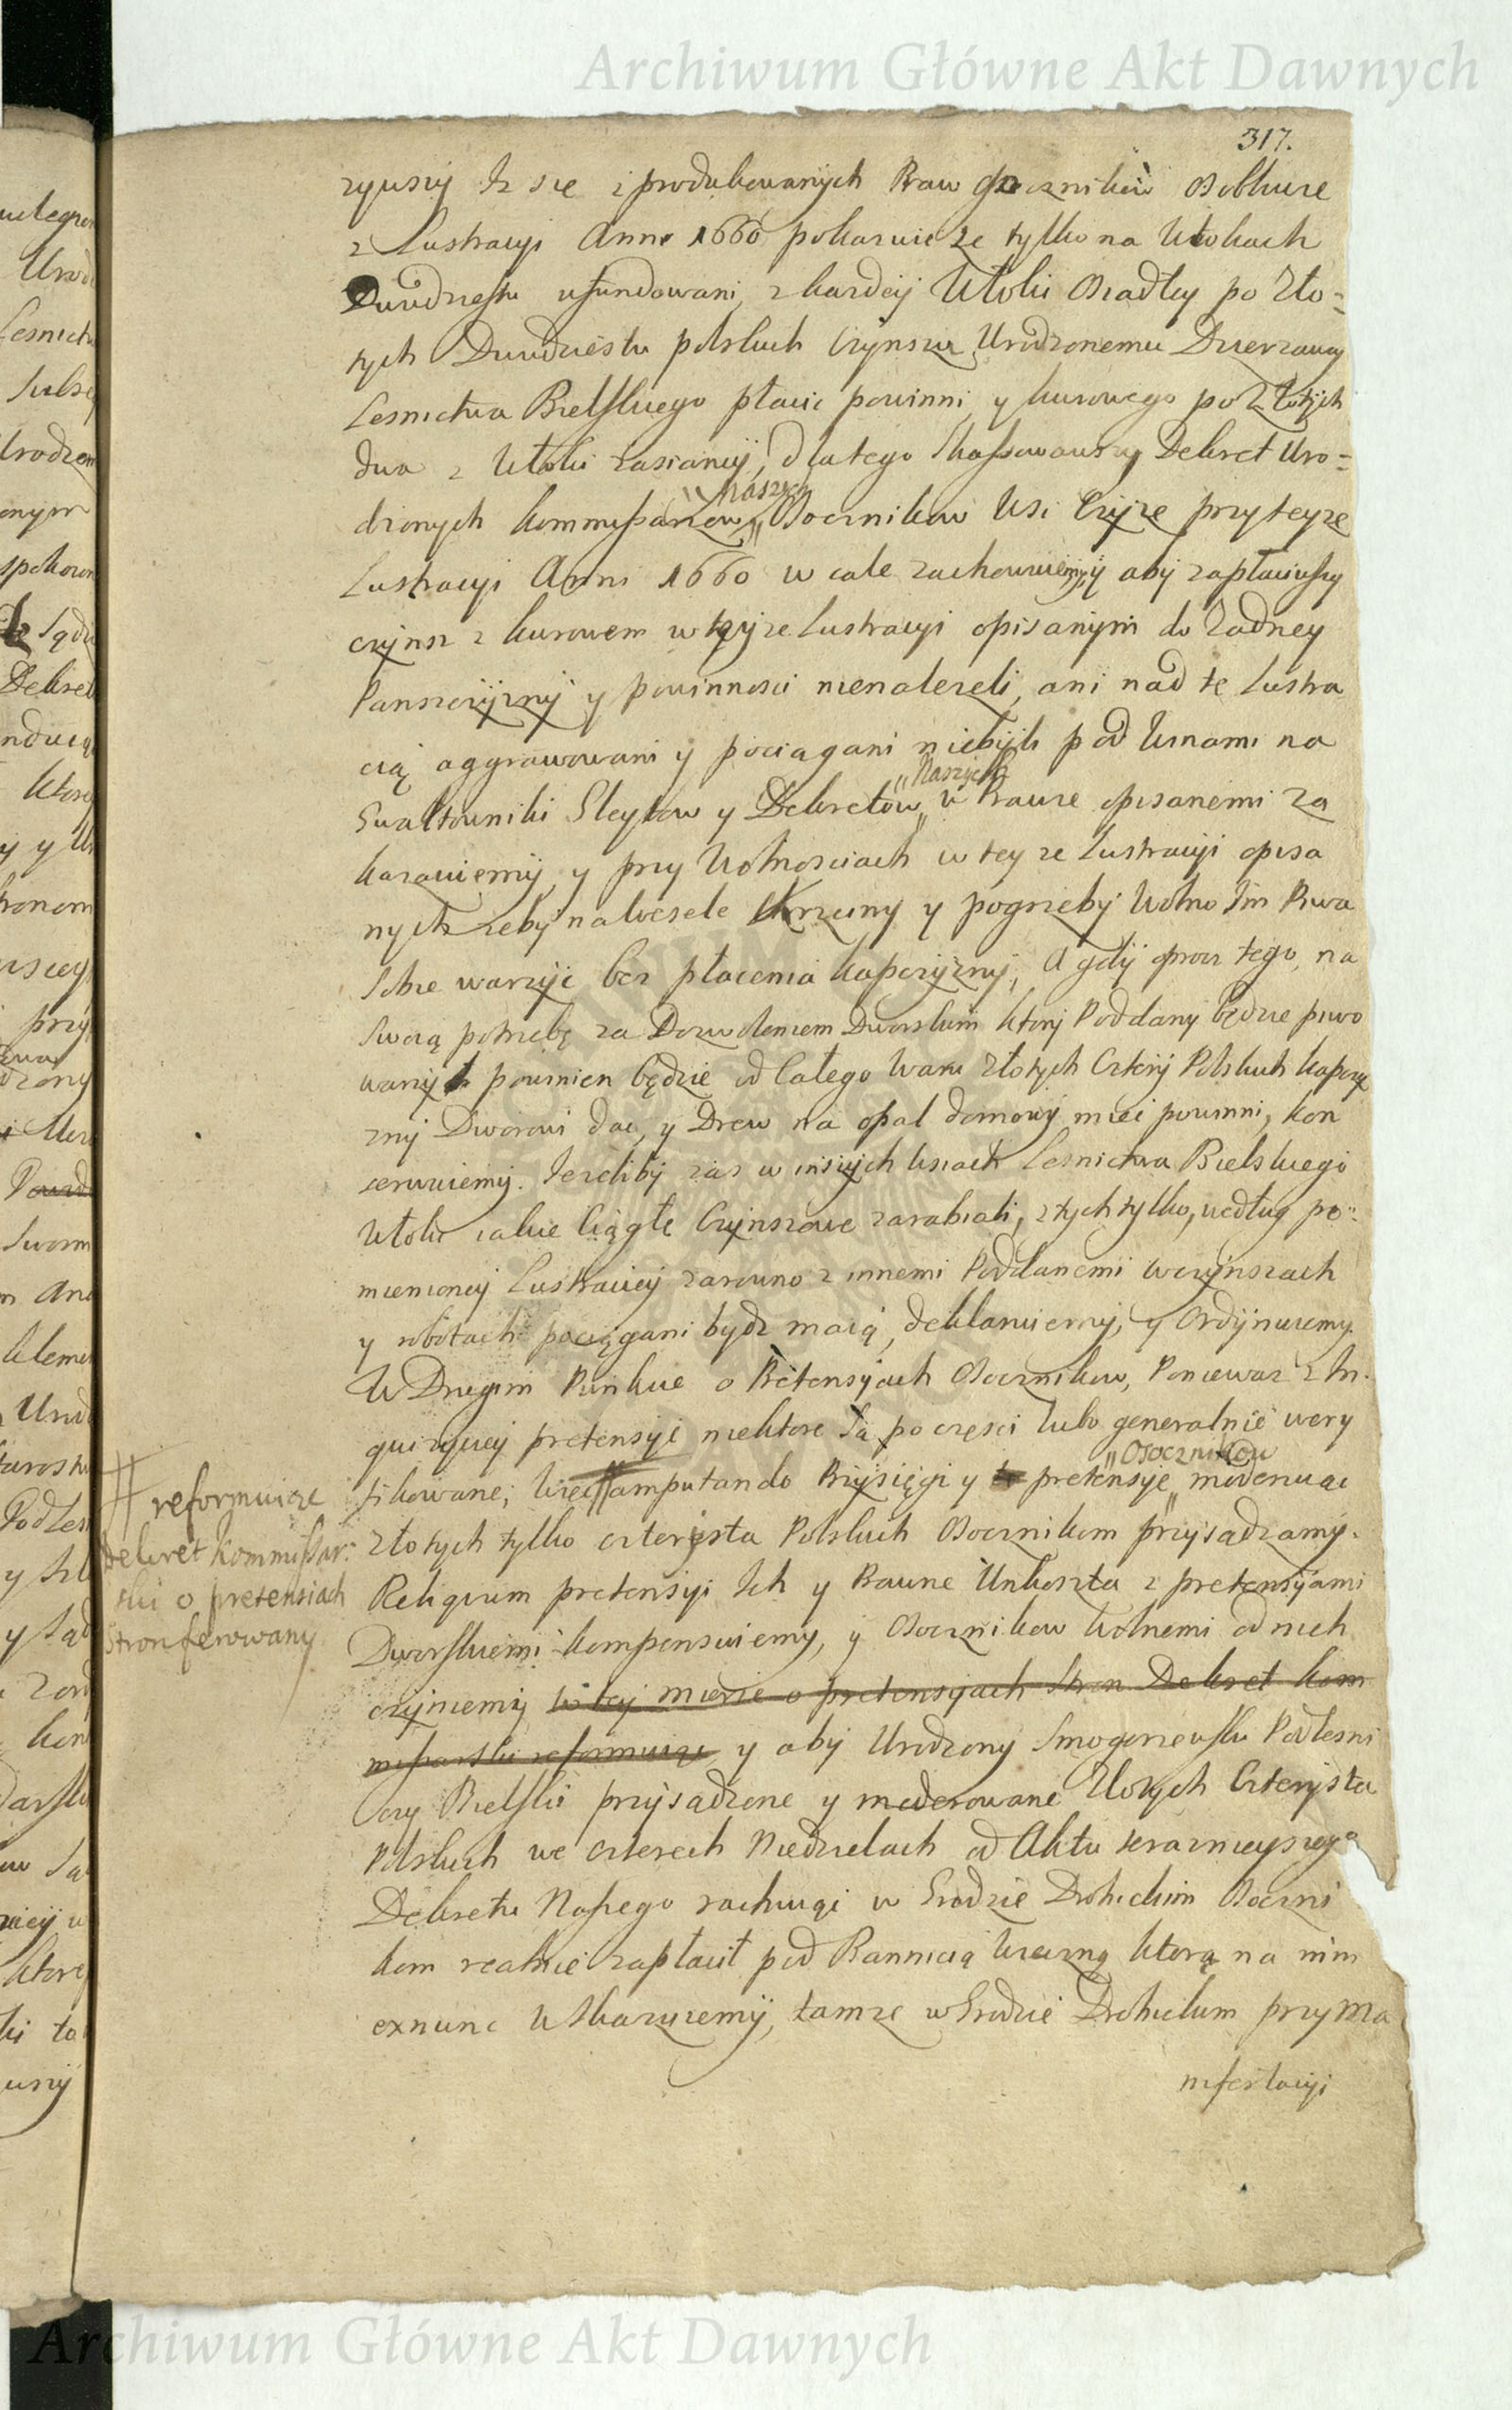 Archiwum Główne Akt Dawnych
317.
iż się z produkowanych Praw Osoczników
z Lustracyi Anni 1660 pokazuie że tylko na Włokach
Dwudziestu ufundowani, z kazdey Włoki Osiadłey po Zło=
tych Dwudziestu polskich Czynszu Urodzonemu Dzierzawcy
Lesnictwa Bielskiego płacic powinni, y kurowego po Złotych
dwa z Włoki zasianey, dlatego Skassowawszy Dekret Uro=
dzonych Kommissarzow „Naszych„ Osocznikow Wsi Czyże przy teyże
Lustracyi Anni 1660 w cale zachowuiemy aby zapłaciwszy
czynsz z kurowem w teyże Lustracyi opisanym do Zadney
Panszczyzny y powinnosci nienalezeli, ani nad tę Lustra
cią aggrawowani y pociągani niebyli pod Winami na
Gwałtowniki Gleytow y Dekretow „Naszych„ w Prawie opisanemi za
kazuiemy, y przy Wolnosciach w tey ze Lustracyi opisa
nych zeby na Wesele Chrzciny y pogrzeby Wolno Im Piwa
Sobie warzyc bez płacenia kapczyzny, A gdy procz tego, na
Swoią potrzebę za Dozwoleniem Dworskim ktory Poddany będzie piwo
warzył powinien będzie od Całego Waru Złotych Cztery Polskich kapczy
zny Dworowi dac, y Drew na opał domowy miec powinni, kon
serwuiemy. Jezeliby zas w inszych Wsiach Lesnictwa Bielskiego
Włoki iakie Ciągłe Czynszowe zarabiali, z tych tylko, według po=
mienioney Lustracyey zarowno z innemi Poddanemi w czynszach
y robotach pociągani bydz maią, deklaruiemy, y Ordynuiemy.
W Drugim Punkcie o Pretensyach Osocznikow, Poniewaz z In
quizycyey pretensye niektore Są po częsci lubo generalnie wery
fikowane; Więc # amputando Przysięgi y pretensye „Osocznikow„ moderuiąc
# reformuiąc
dekret Kommissar:
ski o pretensiach
Stron ferowany
Złotych tylko czterysta Polskich Osocznikom przysądzamy.
Reliquum pretensyi Ich y Prawne Unkoszta z pretensyami
Dworskiemi kompensuiemy, y Osocznikow Wolnemi od nich
czyniemy w tey mierze o pretensyach Stron Dekret Kom
missarski reformuiąc y aby Urodzony Smogorzewski Podlesni
czy Bielski przysądzone y moderowane Złotych Czterysta
Polskich we czterech Niedzielach od Aktu terazniejszego
Dekretu Naszego rachuiąc w Grodzie Drohickim Osoczni
kom realnie zapłacił pod Bannicią Wieczną ktorą na nim
exnunc Wskazuiemy, tamze w Grodzie Drohickim przy Ma
nifestacyi
Archiwum Główne Akt Dawnych